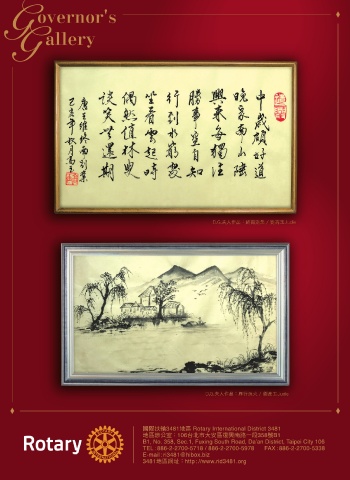 Governor's
Gallery
中歲頗好道
晚家南山陲
興來每獨往
勝事空自知
行到水窮處
坐看雲起時
偶然值林叟
談笑無還期
唐王維終南別業
己亥年秋月
Rotary
國際扶輪3481地區 Rotary International District 3481
地區辦公室：106台北市大安區復興南路一段358號B1
B1, No. 358, Sec.1, Fuxing South Road, Da'an District, Taipei City 106
TEL: 886-2-2700-5719 / 886-2-2700-5978 FAX: 886-2-2700-5339
E-mail: ri3481@hibox.biz
3481地區網址：http://www.rid3481.org